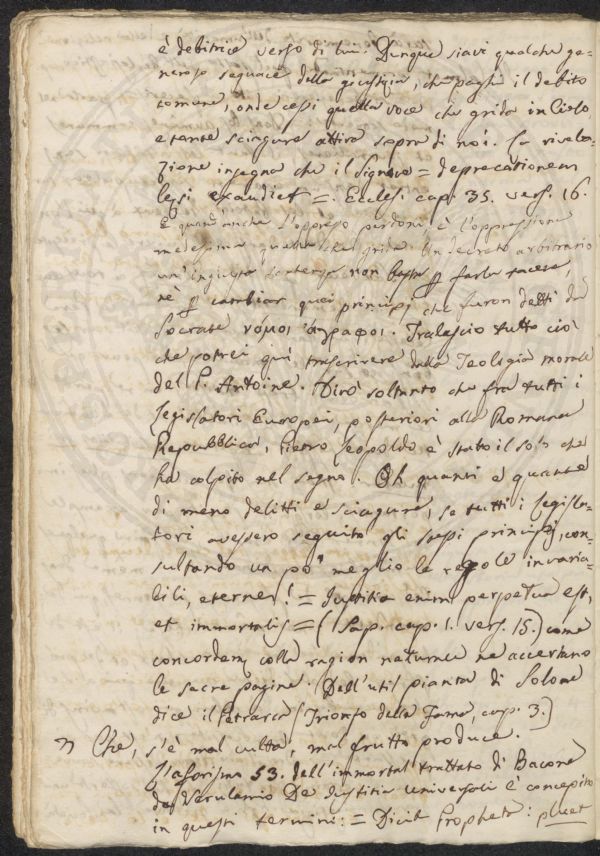 è debitrice verso di lui. Dunque siavi qualche ge-
neroso seguace della giustizia, che paghi il debito
comune, onde cessi quella voce che grida in Cielo,
e tante sciagure attira sopra di noi. La rivela-
zione insegna che il Signore = deprecationem
lesi exaudiet =. Ecclesi cap. 35. vers. 16.
E quand'anche l'oppresso perdoni, è l'oppressione
medesima quella che grida. Un decreto arbitrario
un'ingiusta sentenza non basta p farla tacere,
nè p cambiar quei principj che furon detti da
Socrate νόμοι ἄγραφοι. Tralascio tutto ciò
che potrei quì trascrivere dalla Teologia morale
del P. Antoine. Dirò soltanto che fra tutti i
Legislatori Europei, posteriori alla Romana
Repubblica, Pietro Leopoldo è stato il solo che
ha colpito nel segno. Oh quanti e quante
di meno delitti e sciagure, se tutti i Legisla-
tori avessero seguito gli stessi principj, con-
sultando un po' meglio le regole invaria-
bili, eterne! = Justitia enim perpetua est,
et immortalis = (Sap. cap. 1. vers. 15.) come
concordem colla ragion naturale ne accertano
le sacre pagine. Dell'util pianta di Solone
dice il Petrarca (Trionfo della Fama, cap. 3.)
" Che, s'è mal culta, mal frutto produce.
L'aforismo 53. dell'immortal trattato di Bacone
da Verulamio De Justitia universali è concepito
in questi termini: = Dicit Propheta: pluet